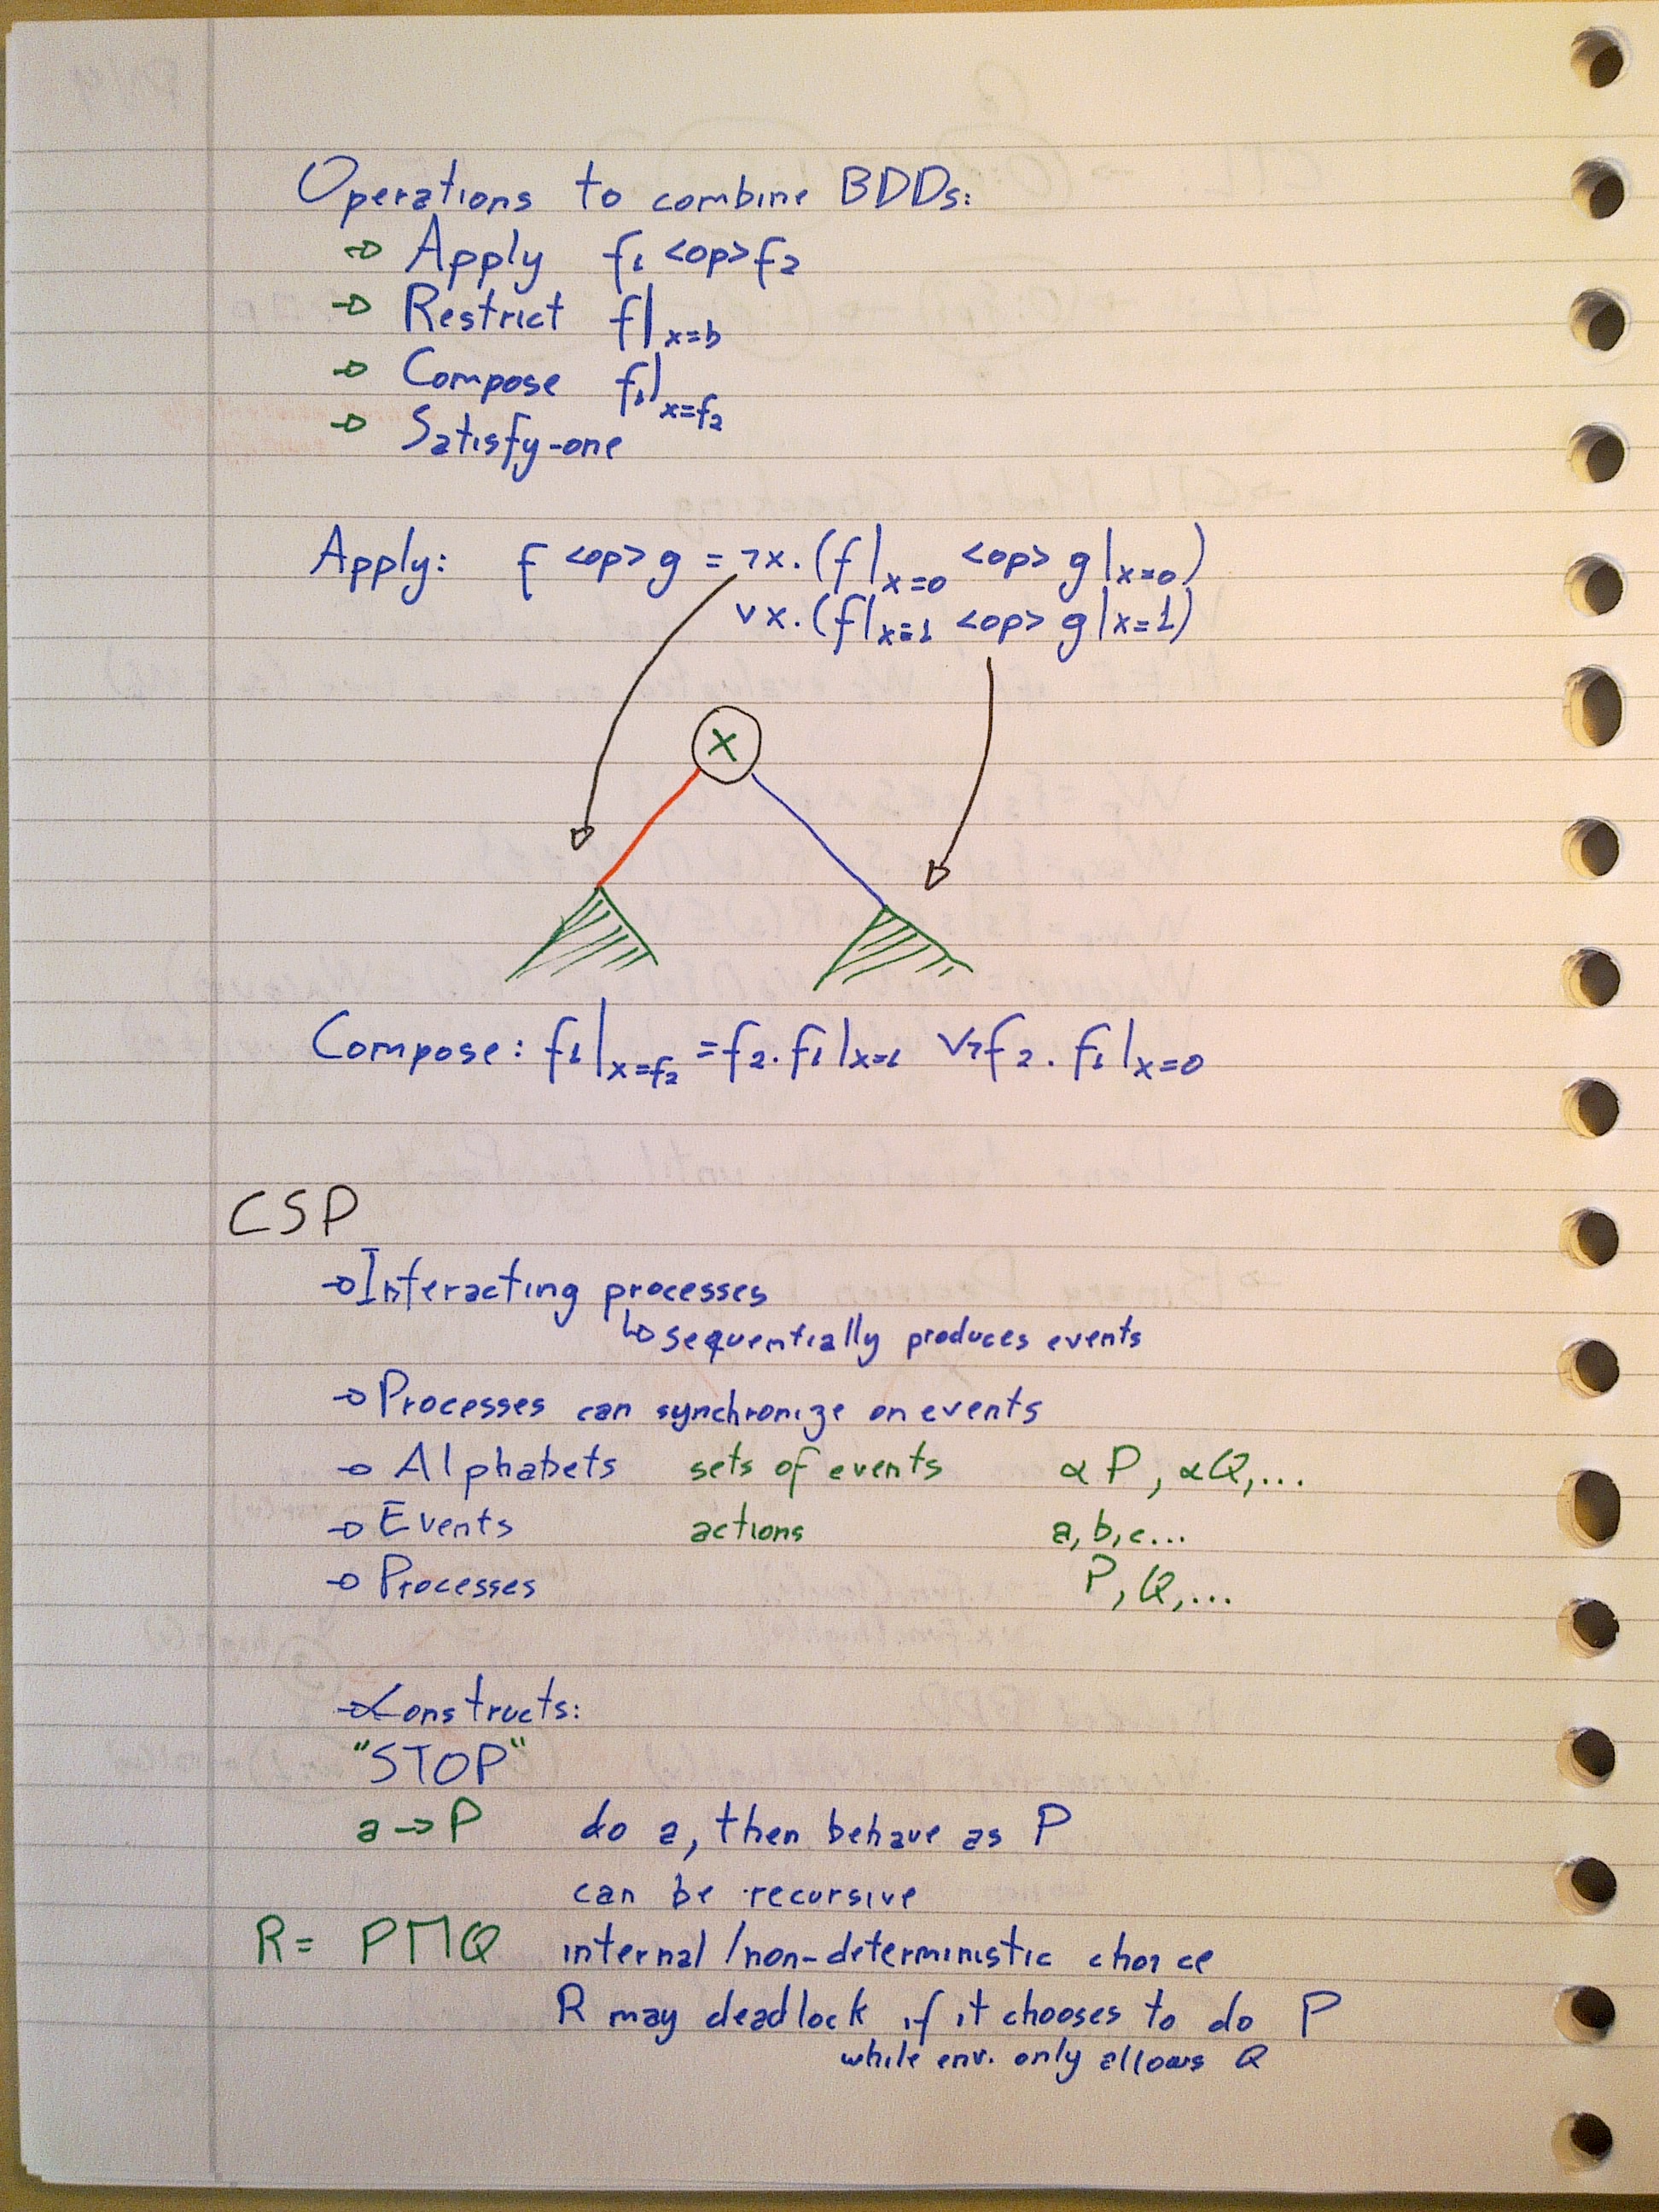 Operations to combine BDDs:
→ Apply f₁ <op> f₂
→ Restrict f|x=b
→ Compose f₁|x=f₂
→ Satisfy-one
Apply: f <op> g = ¬x.(f|x=0 <op> g|x=0)
∨x.(f|x=1 <op> g|x=1)
x
Compose: f₁|x=f₂ = f₂.f₁|x=1 ∨¬f₂.f₁|x=0
CSP
→ Interacting processes
↳ sequentially produces events
→ Processes can synchronize on events
→ Alphabets sets of events αP, αQ,...
→ Events actions a, b, c...
→ Processes P, Q,...
→ Constructs:
"STOP"
a → P do a, then behave as P
can be recursive
R = P⊓Q internal/non-deterministic choice
R may deadlock if it chooses to do P
while env. only allows Q